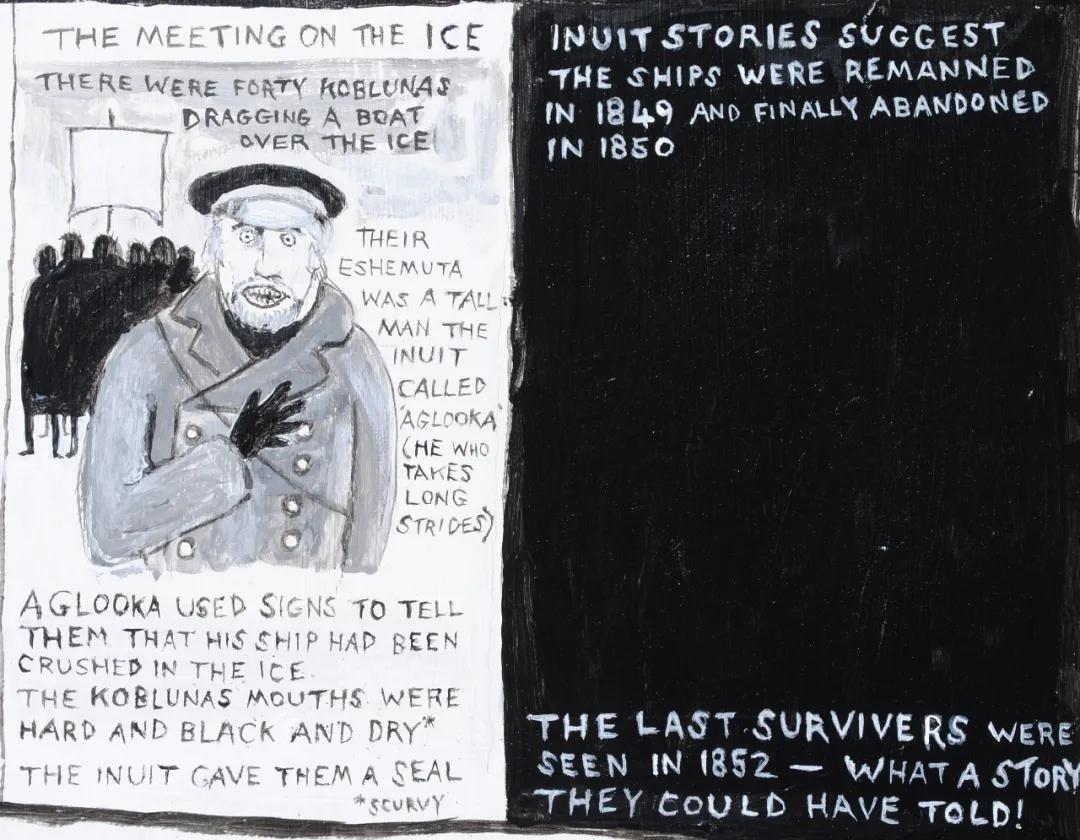 THE MEETING ON THE ICE
THERE WERE FORTY KOBLUNAS
DRAGGING A BOAT
OVER THE ICE
THEIR
ESHEMUTA
WAS A TALL
MAN THE
INUIT
CALLED
'AGLOOKA'
(HE WHO
TAKES
LONG
STRIDES)
AGLOOKA USED SIGNS TO TELL
THEM THAT HIS SHIP HAD BEEN
CRUSHED IN THE ICE.
THE KOBLUNAS MOUTHS WERE
HARD AND BLACK AND DRY*
THE INUIT GAVE THEM A SEAL
*SCURVY
INUIT STORIES SUGGEST
THE SHIPS WERE REMANNED
IN 1849 AND FINALLY ABANDONED
IN 1850
THE LAST SURVIVERS WERE
SEEN IN 1852 — WHAT A STORY
THEY COULD HAVE TOLD!